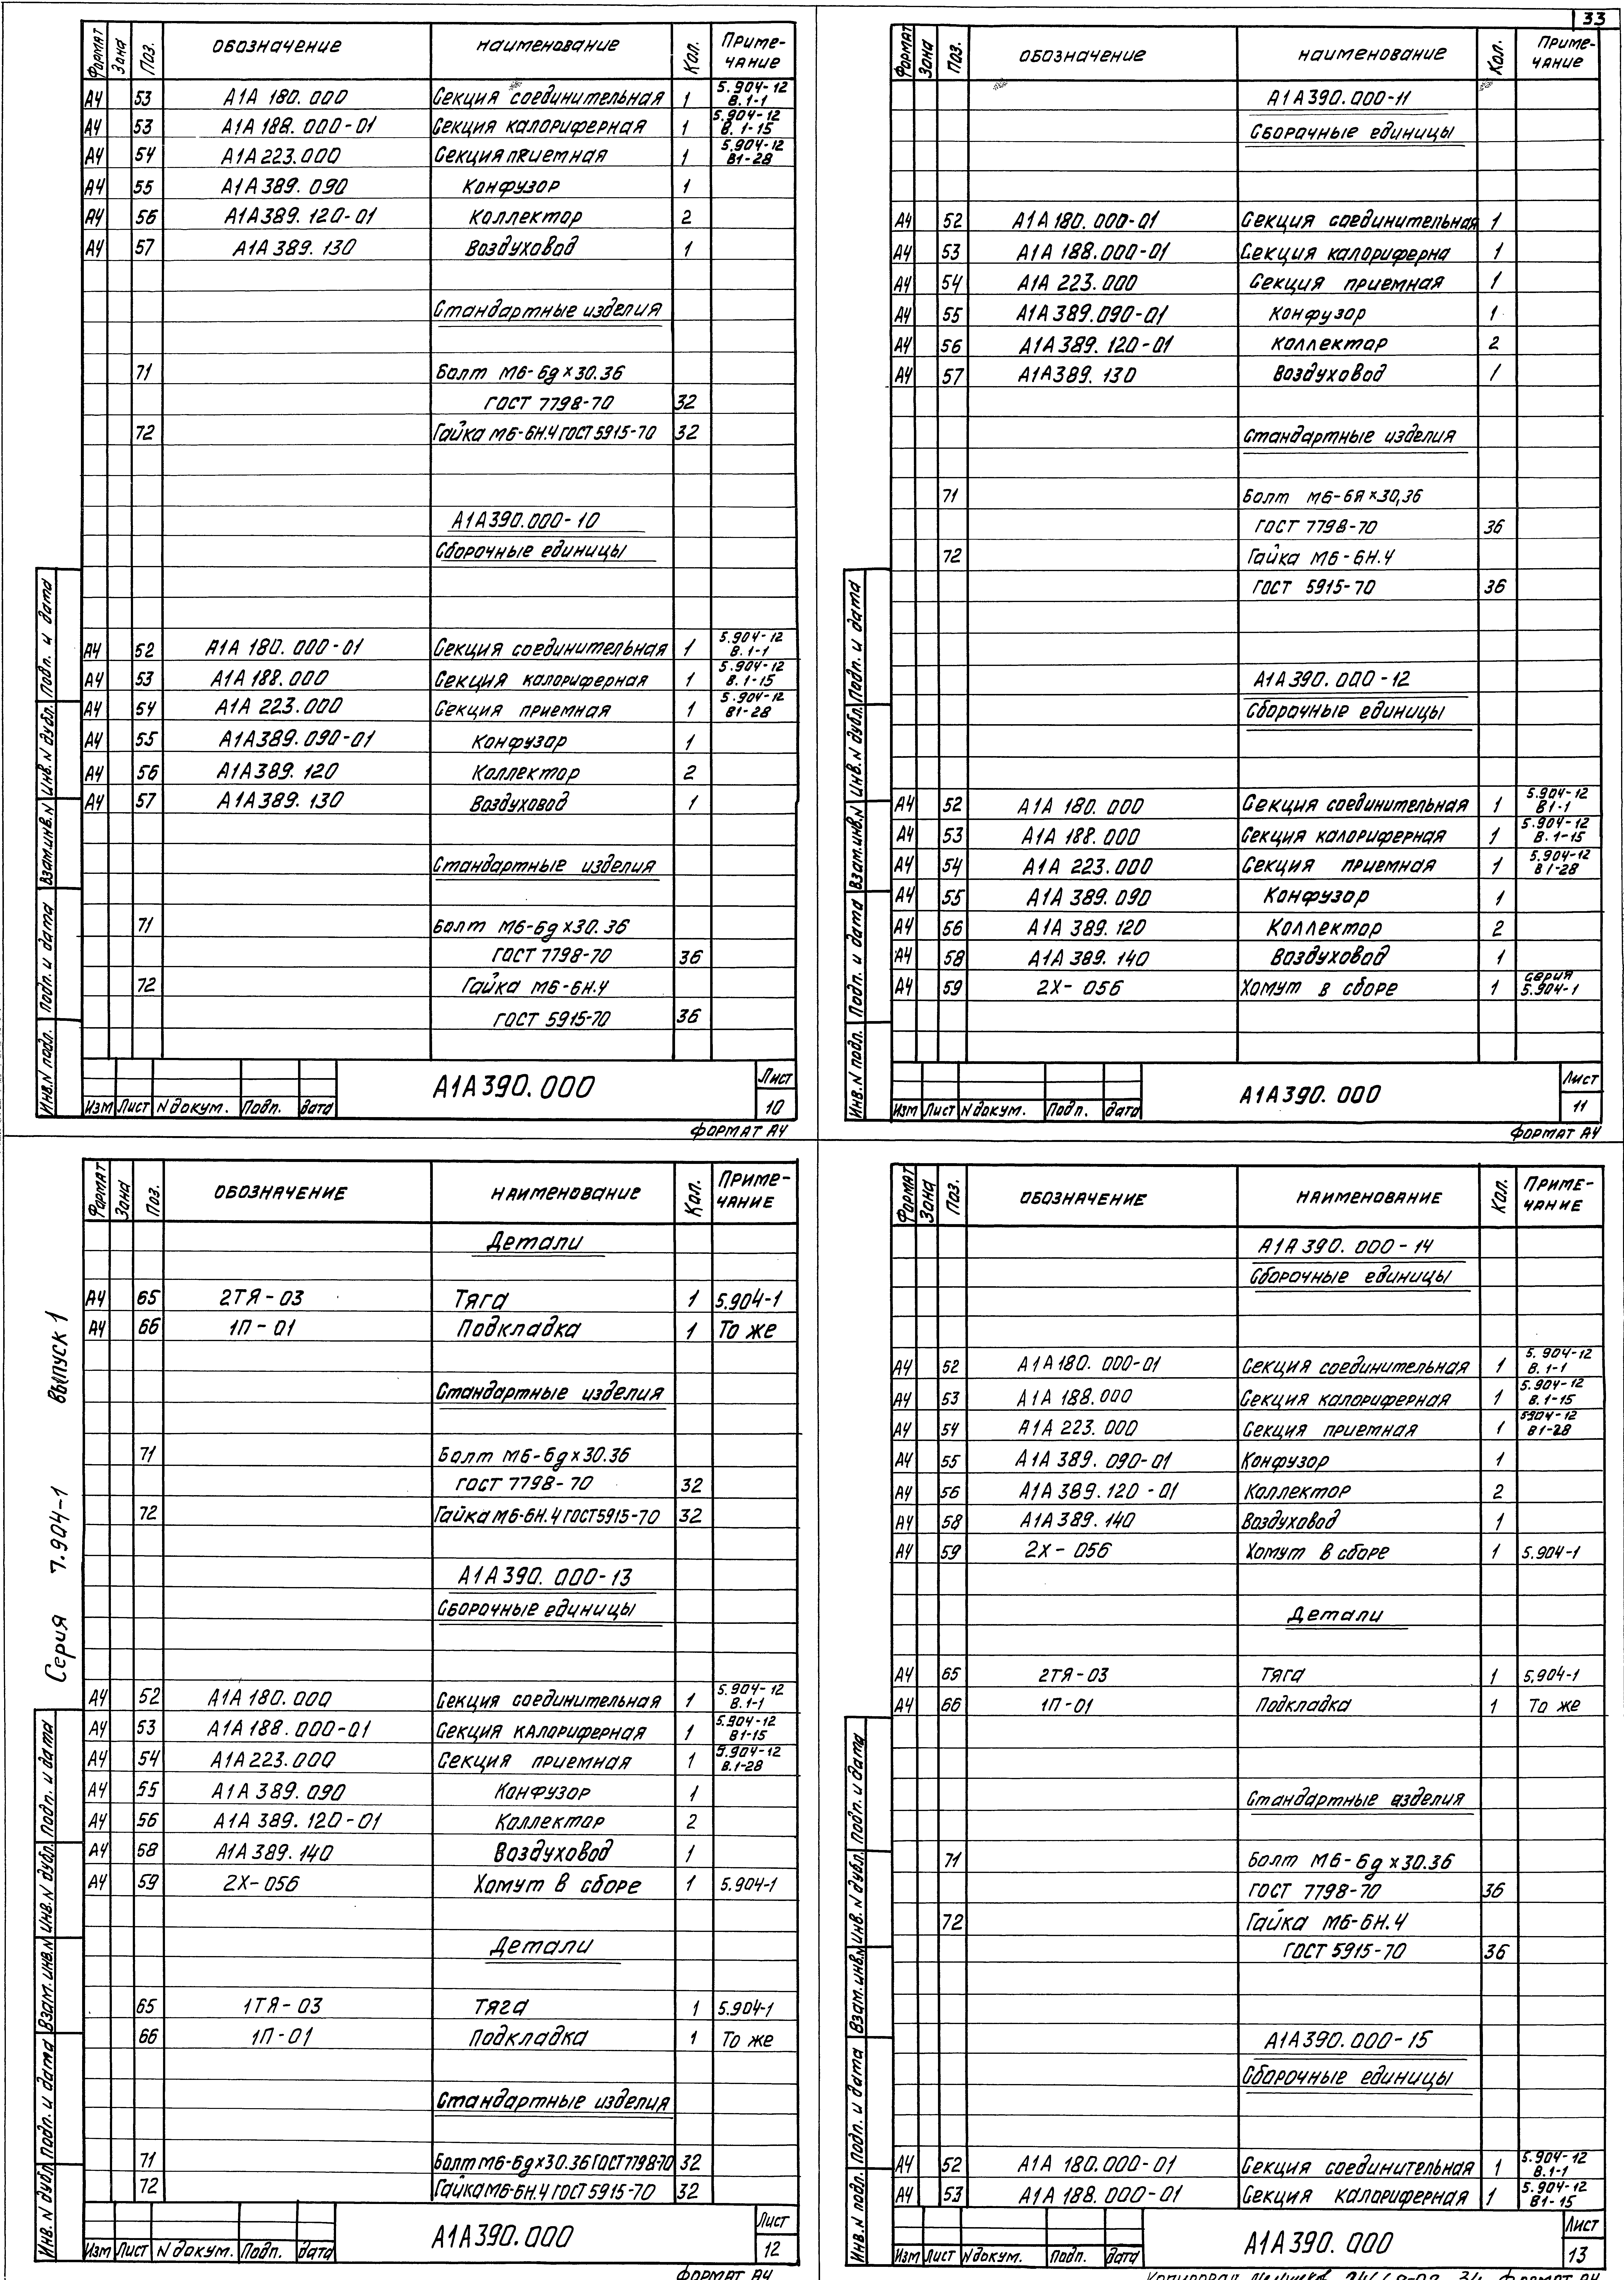 33
Формат Зона Поз. Обозначение Наименование Кол. Примечание
А4 53 А1А 180.000 Секция соединительная 1 5.904-12 В.1-1
А4 53 А1А 188.000-01 Секция калориферная 1 5.904-12 В.1-15
А4 54 А1А 223.000 Секция приемная 1 5.904-12 В1-28
А4 55 А1А 389.090 Конфузор 1
А4 56 А1А 389.120-01 Коллектор 2
А4 57 А1А 389.130 Воздуховод 1
Стандартные изделия
71 Болт М6-6g×30.36
ГОСТ 7798-70 32
72 Гайка М6-6Н.4 ГОСТ 5915-70 32
А1А390.000-10
Сборочные единицы
А4 52 А1А 180.000-01 Секция соединительная 1 5.904-12 В.1-1
А4 53 А1А 188.000 Секция калориферная 1 5.904-12 В.1-15
А4 54 А1А 223.000 Секция приемная 1 5.904-12 В1-28
А4 55 А1А389.090-01 Конфузор 1
А4 56 А1А389.120 Коллектор 2
А4 57 А1А389.130 Воздуховод 1
Стандартные изделия
71 Болт М6-6g×30.36
ГОСТ 7798-70 36
72 Гайка М6-6Н.4
ГОСТ 5915-70 36
Инв.N подл. Подп. и дата Взам.инв.N Инв.N дубл. Подп. и дата
Изм Лист N докум. Подп. Дата А1А390.000 Лист 10
Формат А4
Формат Зона Поз. Обозначение Наименование Кол. Примечание
А1А390.000-11
Сборочные единицы
А4 52 А1А 180.000-01 Секция соединительная 1
А4 53 А1А 188.000-01 Секция калориферна 1
А4 54 А1А 223.000 Секция приемная 1
А4 55 А1А 389.090-01 Конфузор 1
А4 56 А1А 389.120-01 Коллектор 2
А4 57 А1А389.130 Воздуховод 1
Стандартные изделия
71 Болт М6-6Я×30,36
ГОСТ 7798-70 36
72 Гайка М6-6Н.4
ГОСТ 5915-70 36
А1А390.000-12
Сборочные единицы
А4 52 А1А 180.000 Секция соединительная 1 5.904-12 В1-1
А4 53 А1А 188.000 Секция калориферная 1 5.904-12 В.1-15
А4 54 А1А 223.000 Секция приемная 1 5.904-12 В1-28
А4 55 А1А 389.090 Конфузор 1
А4 56 А1А 389.120 Коллектор 2
А4 58 А1А 389.140 Воздуховод 1
А4 59 2Х-056 Хомут в сборе 1 серия 5.904-1
Инв.N подл. Подп. и дата Взам.инв.N Инв.N дубл. Подп. и дата
Изм Лист N докум. Подп. Дата А1А390.000 Лист 11
Формат А4
Серия 7.904-1 выпуск 1
Формат Зона Поз. Обозначение Наименование Кол. Примечание
Детали
А4 65 2ТЯ-03 Тяга 1 5.904-1
А4 66 1П-01 Подкладка 1 То же
Стандартные изделия
71 Болт М6-6g×30.36
ГОСТ 7798-70 32
72 Гайка М6-6Н.4 ГОСТ5915-70 32
А1А390.000-13
Сборочные единицы
А4 52 А1А 180.000 Секция соединительная 1 5.904-12 В.1-1
А4 53 А1А 188.000-01 Секция калориферная 1 5.904-12 В1-15
А4 54 А1А223.000 Секция приемная 1 5.904-12 В.1-28
А4 55 А1А 389.090 Конфузор 1
А4 56 А1А 389.120-01 Коллектор 2
А4 58 А1А 389.140 Воздуховод 1
А4 59 2Х-056 Хомут в сборе 1 5.904-1
Детали
65 1ТЯ-03 Тяга 1 5.904-1
66 1П-01 Подкладка 1 То же
Стандартные изделия
71 Болт М6-6g×30.36 ГОСТ7798-70 32
72 Гайка М6-6Н.4 ГОСТ 5915-70 32
Инв.N дубл Подп. и дата Взам.инв.N Инв.N дубл. Подп. и дата
Изм Лист N докум. Подп. Дата А1А390.000 Лист 12
Формат А4
Формат Зона Поз. Обозначение Наименование Кол. Примечание
А1А390.000-14
Сборочные единицы
А4 52 А1А180.000-01 Секция соединительная 1 5.904-12 В.1-1
А4 53 А1А 188.000 Секция калориферная 1 5.904-12 В.1-15
А4 54 А1А 223.000 Секция приемная 1 5904-12 В1-28
А4 55 А1А 389.090-01 Конфузор 1
А4 56 А1А 389.120-01 Коллектор 2
А4 58 А1А 389.140 Воздуховод 1
А4 59 2Х-056 Хомут в сборе 1 5.904-1
Детали
А4 65 2ТЯ-03 Тяга 1 5,904-1
А4 66 1П-01 Подкладка 1 То же
Стандартные изделия
71 Болт М6-6g×30.36
ГОСТ 7798-70 36
72 Гайка М6-6Н.4
ГОСТ 5915-70 36
А1А390.000-15
Сборочные единицы
А4 52 А1А 180.000-01 Секция соединительная 1 5.904-12 В.1-1
А4 53 А1А 188.000-01 Секция калориферная 1 5.904-12 В1-15
Инв.N подл. Подп. и дата Взам.инв.N Инв.N дубл. Подп. и дата
Изм Лист N докум. Подп. Дата А1А390.000 Лист 13
Копировал Формат А4